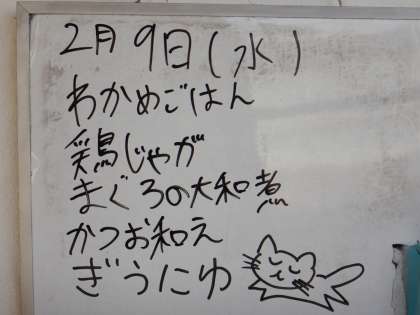 2月9日(水)
わかめごはん
鶏じゃが
まぐろの大和煮
かつお和え
ぎうにゆ